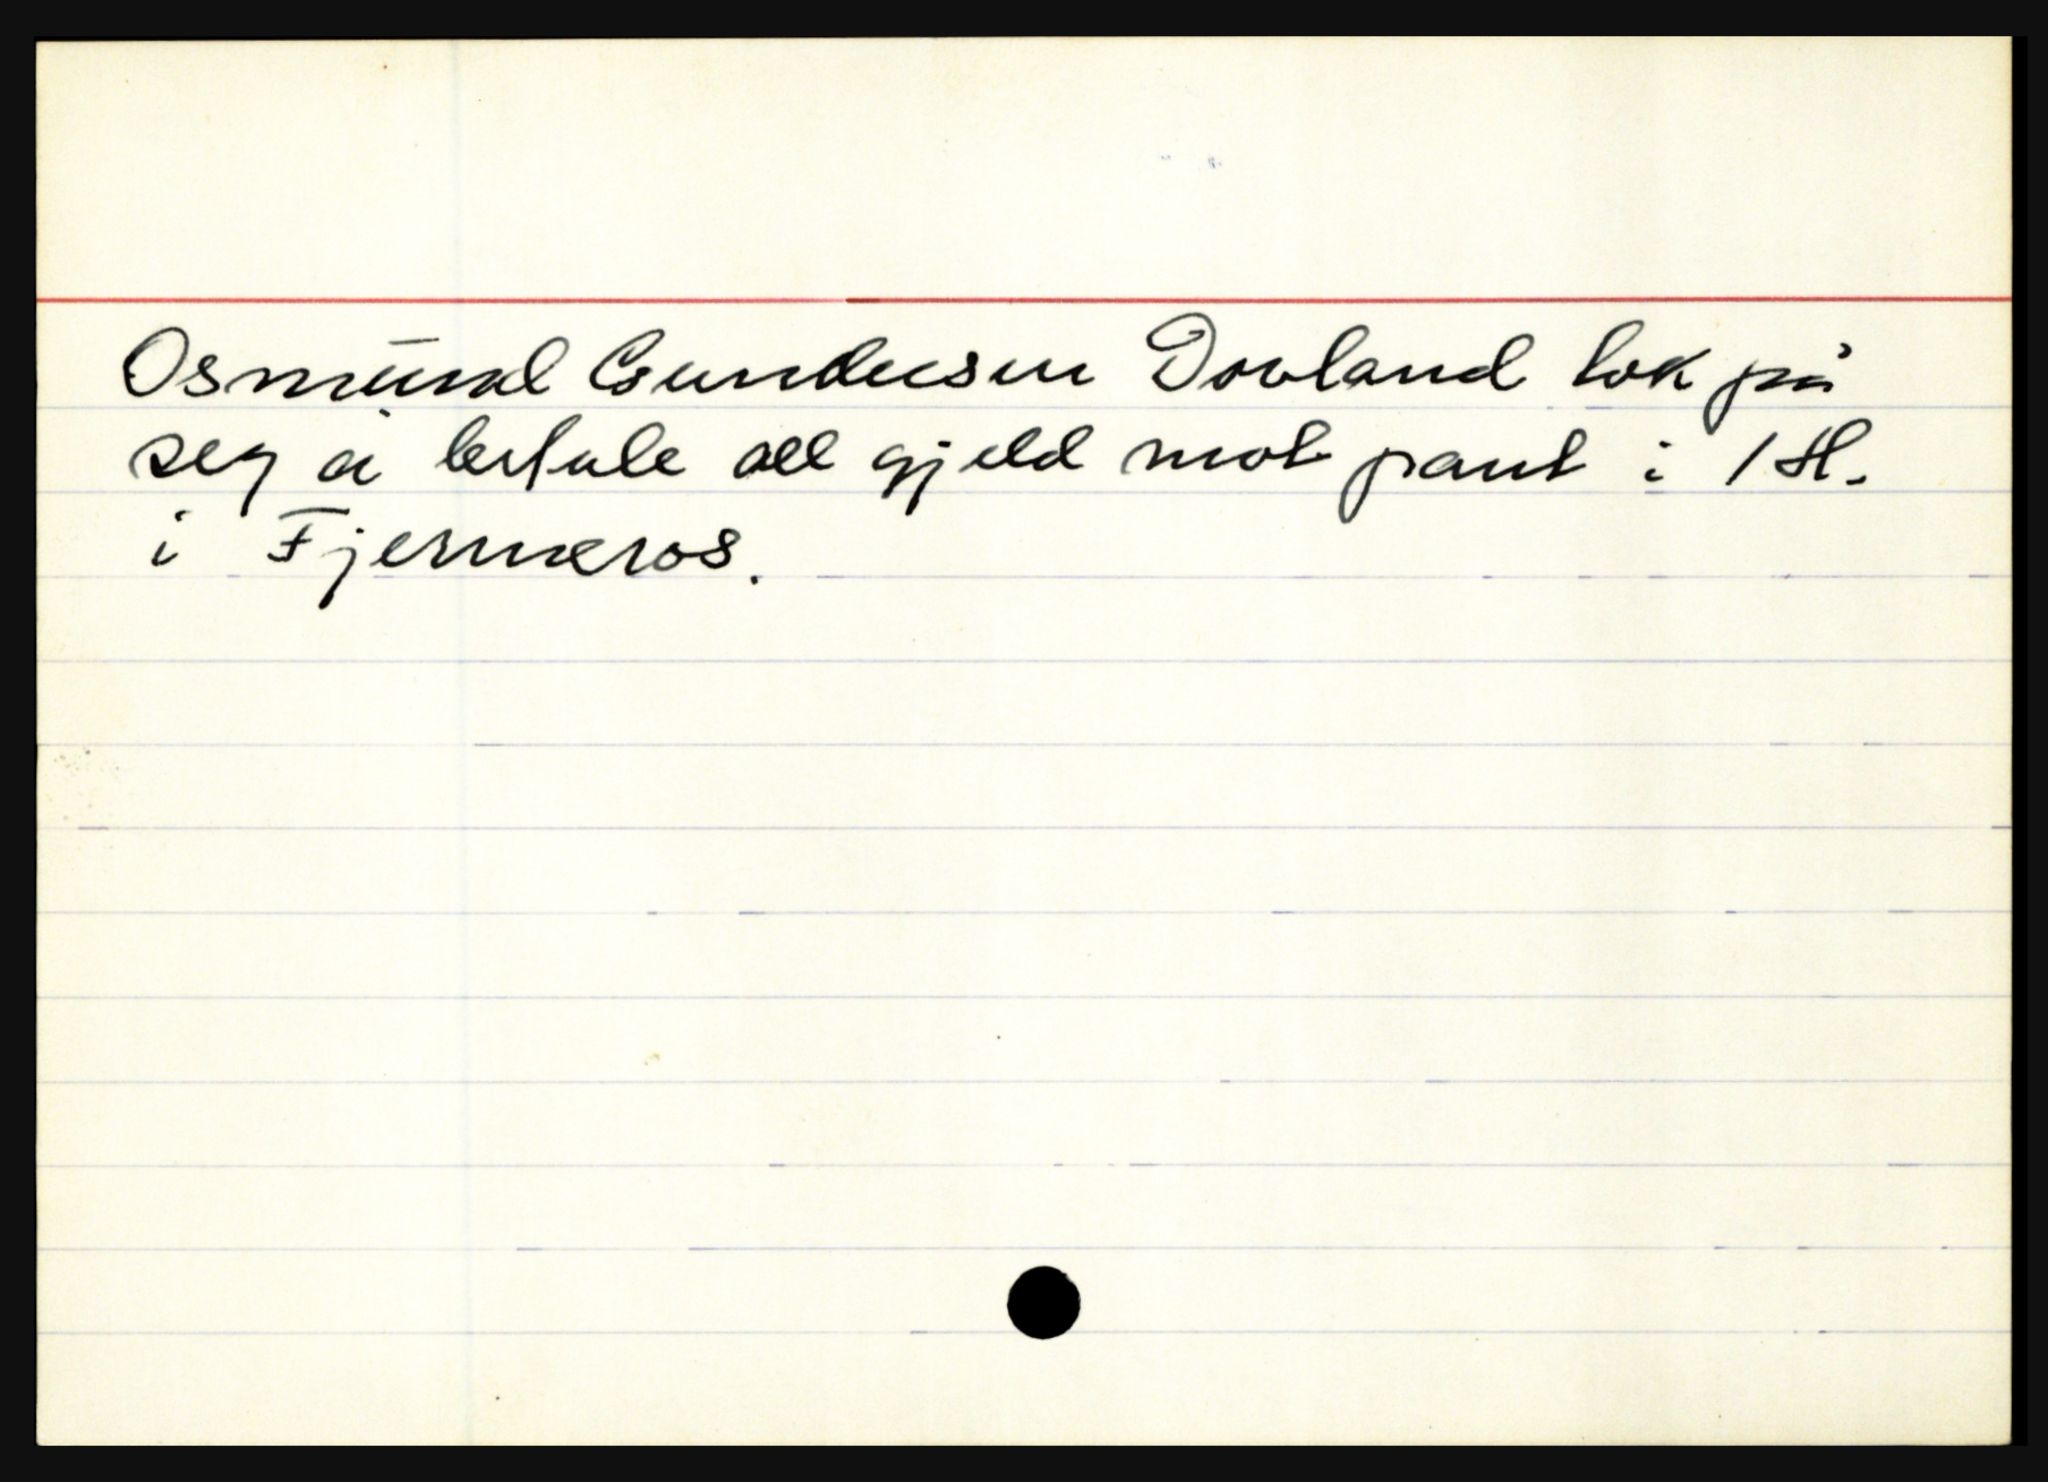 Osmund Gundersen Dovland tok på
seg å betale all gjeld mot pant i 1 H.
i Fjermeros.